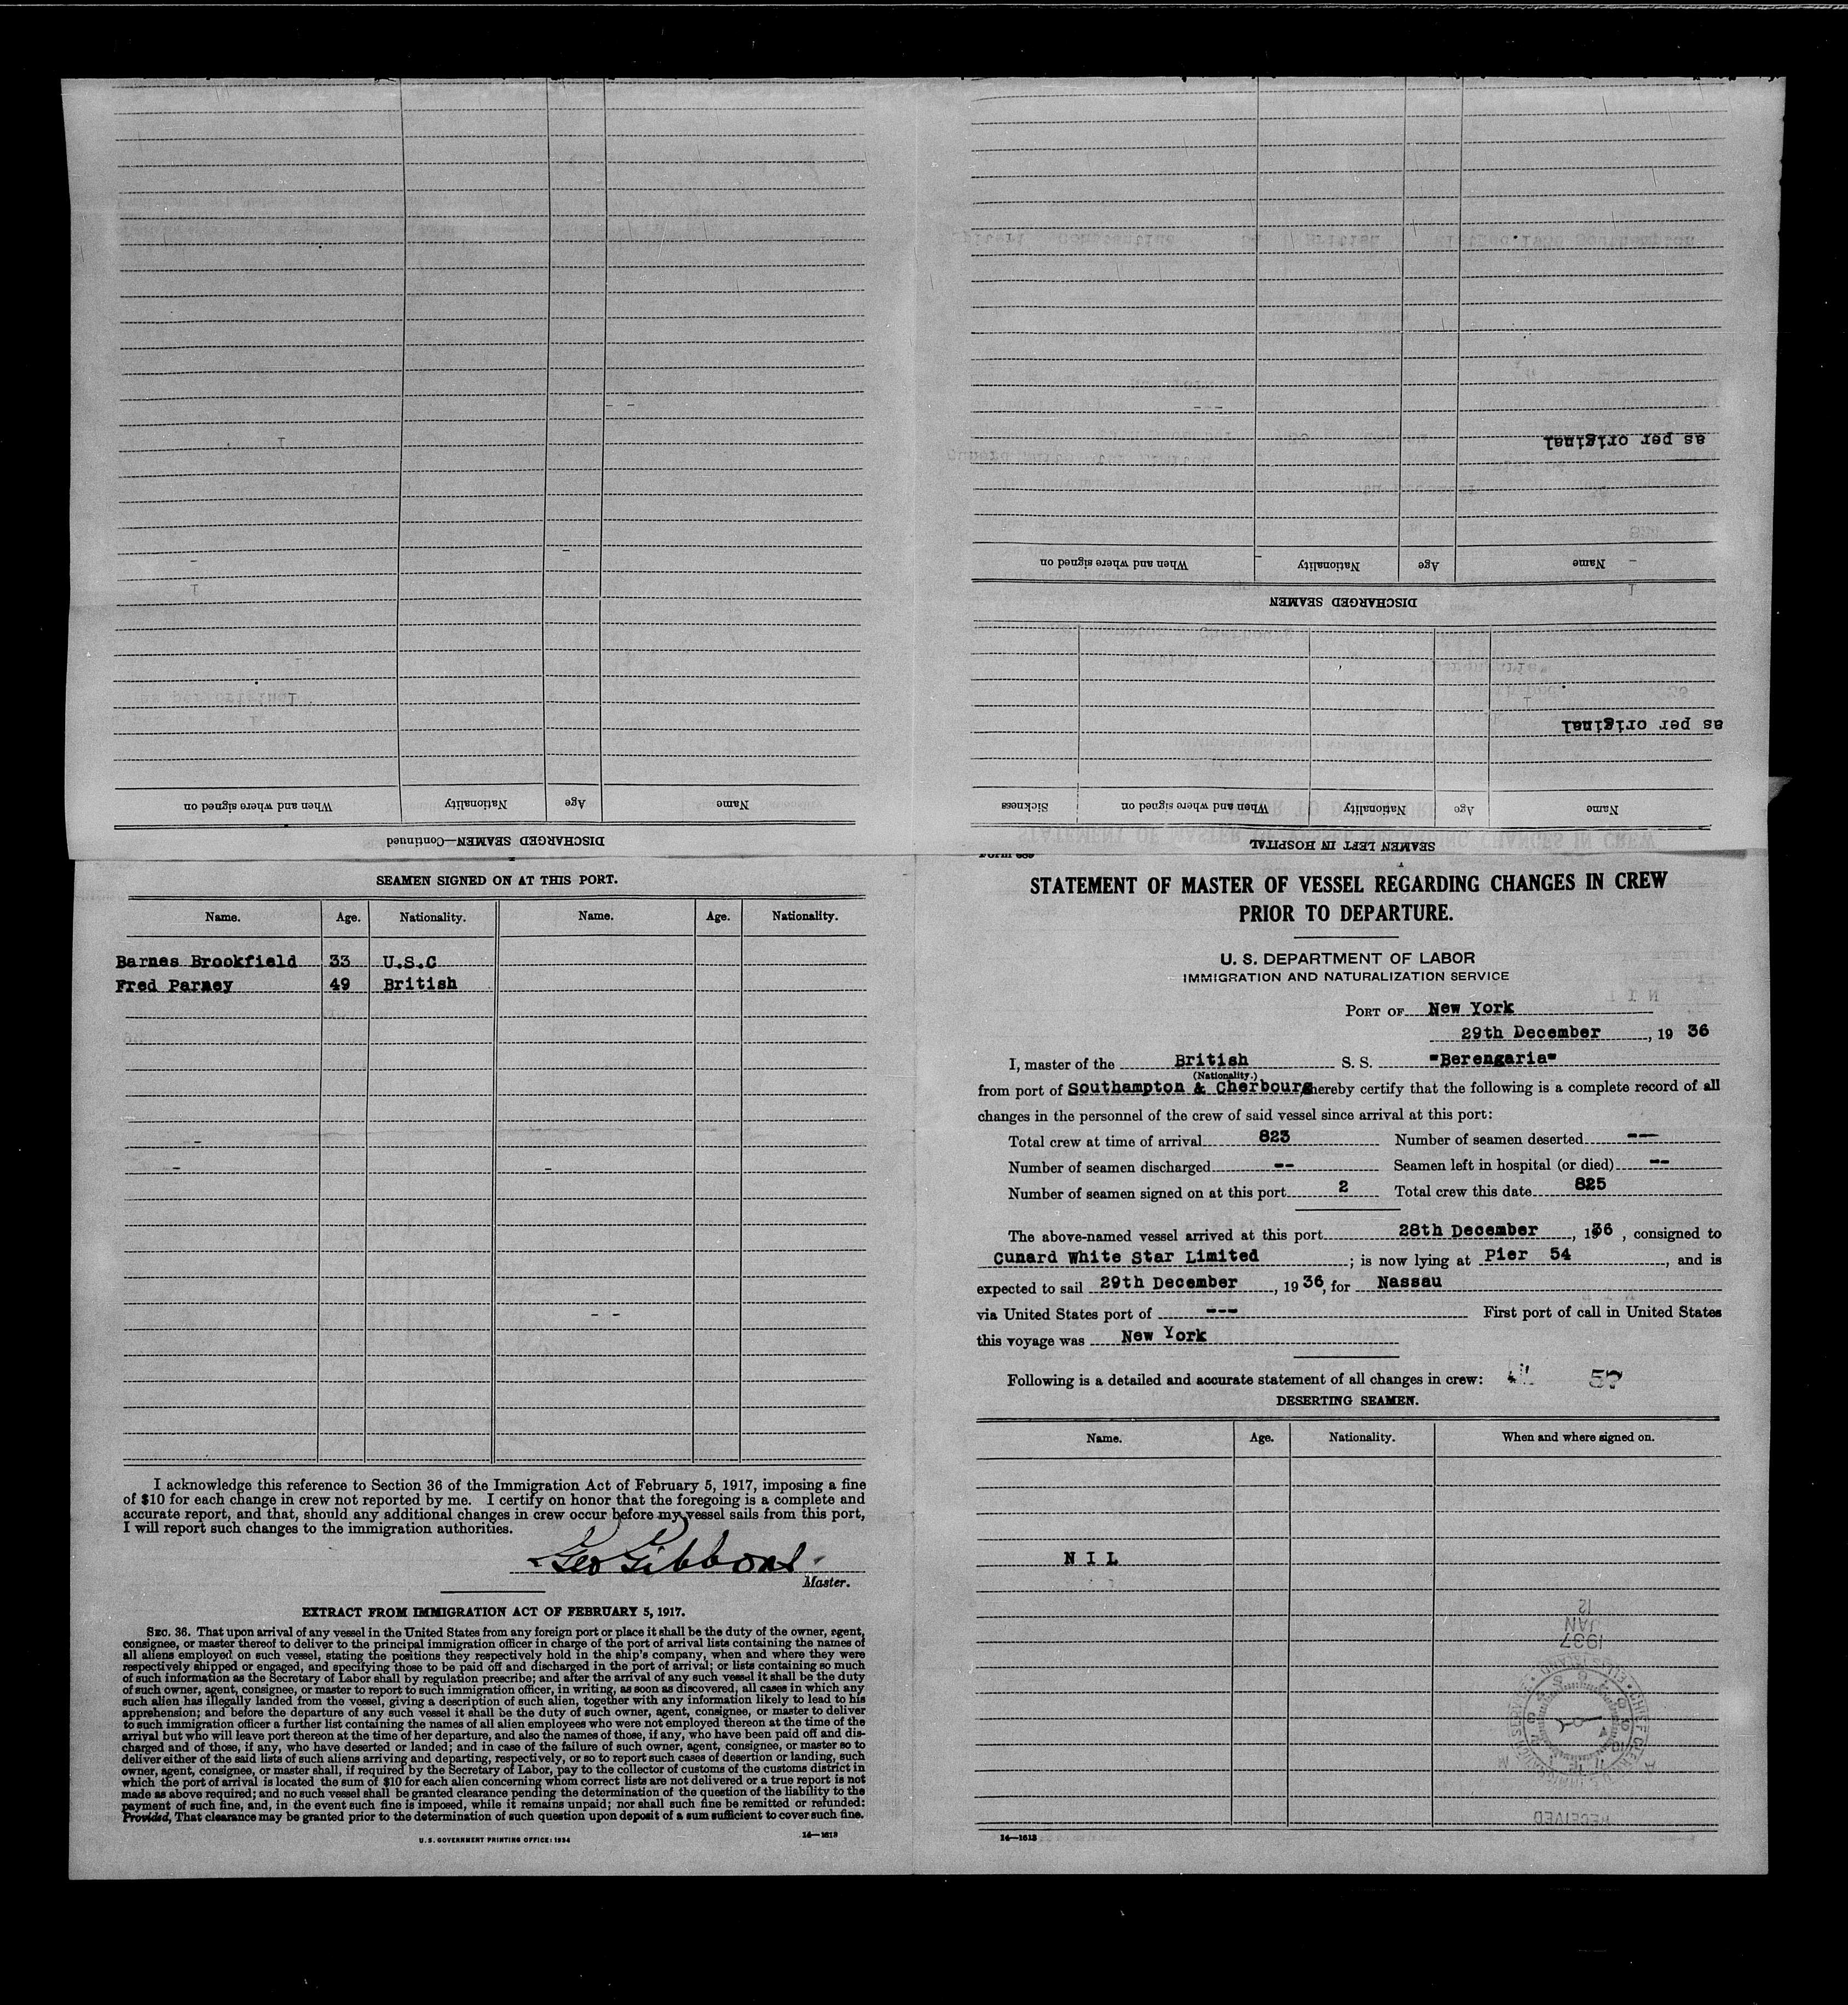 DISCHARGED SEAMEN—Continued
Name
Age
Nationality
When and where signed on
SEAMEN LEFT IN HOSPITAL
Name
Age
Nationality
When and where signed on
Sickness
as per original
DISCHARGED SEAMEN
Name
Age
Nationality
When and where signed on
as per original
SEAMEN SIGNED ON AT THIS PORT.
Name. Age. Nationality. Name. Age. Nationality.
Barnes Brookfield 33 U.S.C
Fred Parney 49 British
I acknowledge this reference to Section 36 of the Immigration Act of February 5, 1917, imposing a fine
of $10 for each change in crew not reported by me. I certify on honor that the foregoing is a complete and
accurate report, and that, should any additional changes in crew occur before my vessel sails from this port,
I will report such changes to the immigration authorities.
Geo Gibbons
Master.
EXTRACT FROM IMMIGRATION ACT OF FEBRUARY 5, 1917.
SEC. 36. That upon arrival of any vessel in the United States from any foreign port or place it shall be the duty of the owner, agent,
consignee, or master thereof to deliver to the principal immigration officer in charge of the port of arrival lists containing the names of
all aliens employed on such vessel, stating the positions they respectively hold in the ship's company, when and where they were
respectively shipped or engaged, and specifying those to be paid off and discharged in the port of arrival; or lists containing so much
of such information as the Secretary of Labor shall by regulation prescribe; and after the arrival of any such vessel it shall be the duty
of such owner, agent, consignee, or master to report to such immigration officer, in writing, as soon as discovered, all cases in which any
such alien has illegally landed from the vessel, giving a description of such alien, together with any information likely to lead to his
apprehension; and before the departure of any such vessel it shall be the duty of such owner, agent, consignee, or master to deliver
to such immigration officer a further list containing the names of all alien employees who were not employed thereon at the time of the
arrival but who will leave port thereon at the time of her departure, and also the names of those, if any, who have been paid off and dis-
charged and of those, if any, who have deserted or landed; and in case of the failure of such owner, agent, consignee, or master so to
deliver either of the said lists of such aliens arriving and departing, respectively, or so to report such cases of desertion or landing, such
owner, agent, consignee, or master shall, if required by the Secretary of Labor, pay to the collector of customs of the customs district in
which the port of arrival is located the sum of $10 for each alien concerning whom correct lists are not delivered or a true report is not
made as above required; and no such vessel shall be granted clearance pending the determination of the question of the liability to the
payment of such fine, and, in the event such fine is imposed, while it remains unpaid; nor shall such fine be remitted or refunded:
Provided, That clearance may be granted prior to the determination of such question upon deposit of a sum sufficient to cover such fine.
U. S. GOVERNMENT PRINTING OFFICE: 1934 14—1613
Form 689
STATEMENT OF MASTER OF VESSEL REGARDING CHANGES IN CREW
PRIOR TO DEPARTURE.
U. S. DEPARTMENT OF LABOR
IMMIGRATION AND NATURALIZATION SERVICE
PORT OF New York
29th December, 19 36
I, master of the British S. S. "Berengaria"
(Nationality.)
from port of Southampton & Cherbourg, hereby certify that the following is a complete record of all
changes in the personnel of the crew of said vessel since arrival at this port:
Total crew at time of arrival 823 Number of seamen deserted ---
Number of seamen discharged -- Seamen left in hospital (or died) --
Number of seamen signed on at this port 2 Total crew this date 825
The above-named vessel arrived at this port 28th December, 1936, consigned to
Cunard White Star Limited; is now lying at Pier 54, and is
expected to sail 29th December, 19 36, for Nassau
via United States port of --- First port of call in United States
this voyage was New York
Following is a detailed and accurate statement of all changes in crew: 57
DESERTING SEAMEN.
Name. Age. Nationality. When and where signed on.
N I L
12
JAN
1937
RECEIVED
14—1613